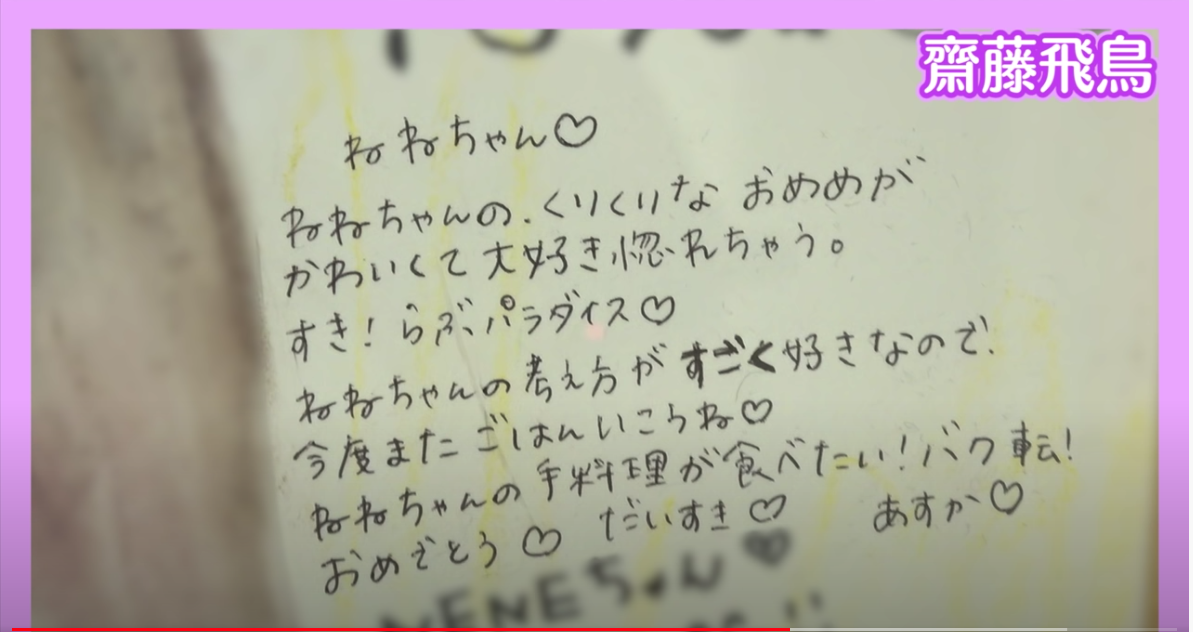 齋藤飛鳥
ねねちゃん♡
ねねちゃんの、くりくりな おめめが
かわいくて大好き惚れちゃう。
すき!らぶパラダイス♡
ねねちゃんの考え方がすごく好きなので、
今度またごはんいこうね♡
ねねちゃんの手料理が食べたい!バク転!
おめでとう♡ だいすき♡ あすか♡
NENEちゃん♥